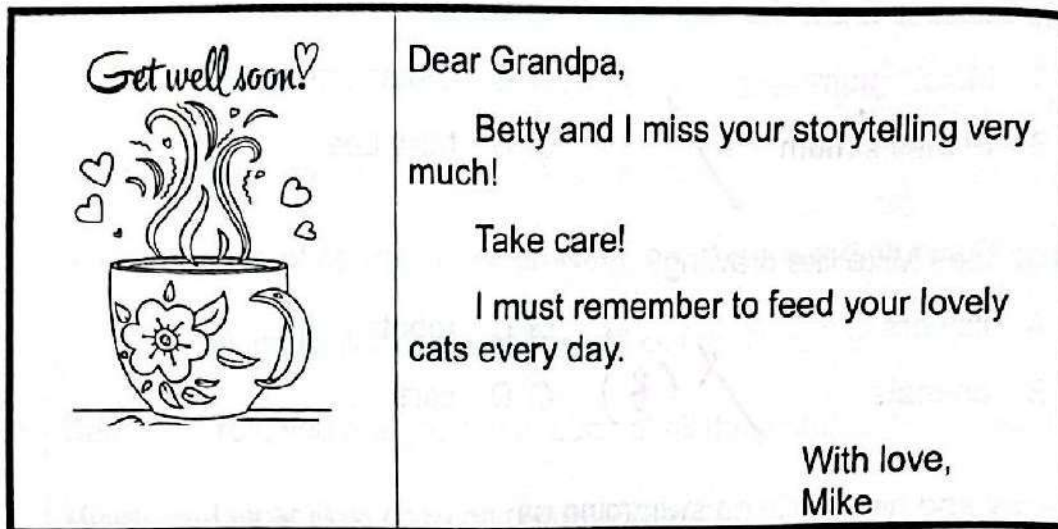 Get well soon!
Dear Grandpa,
Betty and I miss your storytelling very
much!
Take care!
I must remember to feed your lovely
cats every day.
With love,
Mike